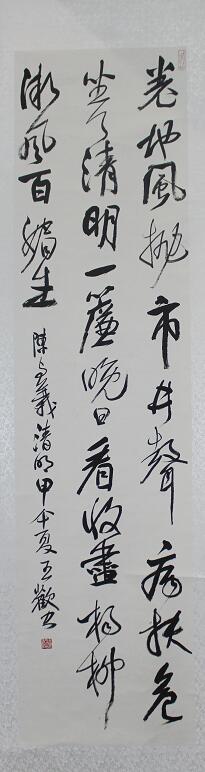 卷地風拋市井聲病扶危
坐了清明一簾晚日看收盡楊柳
微風百媚生
陳与義清明甲午夏王歡书